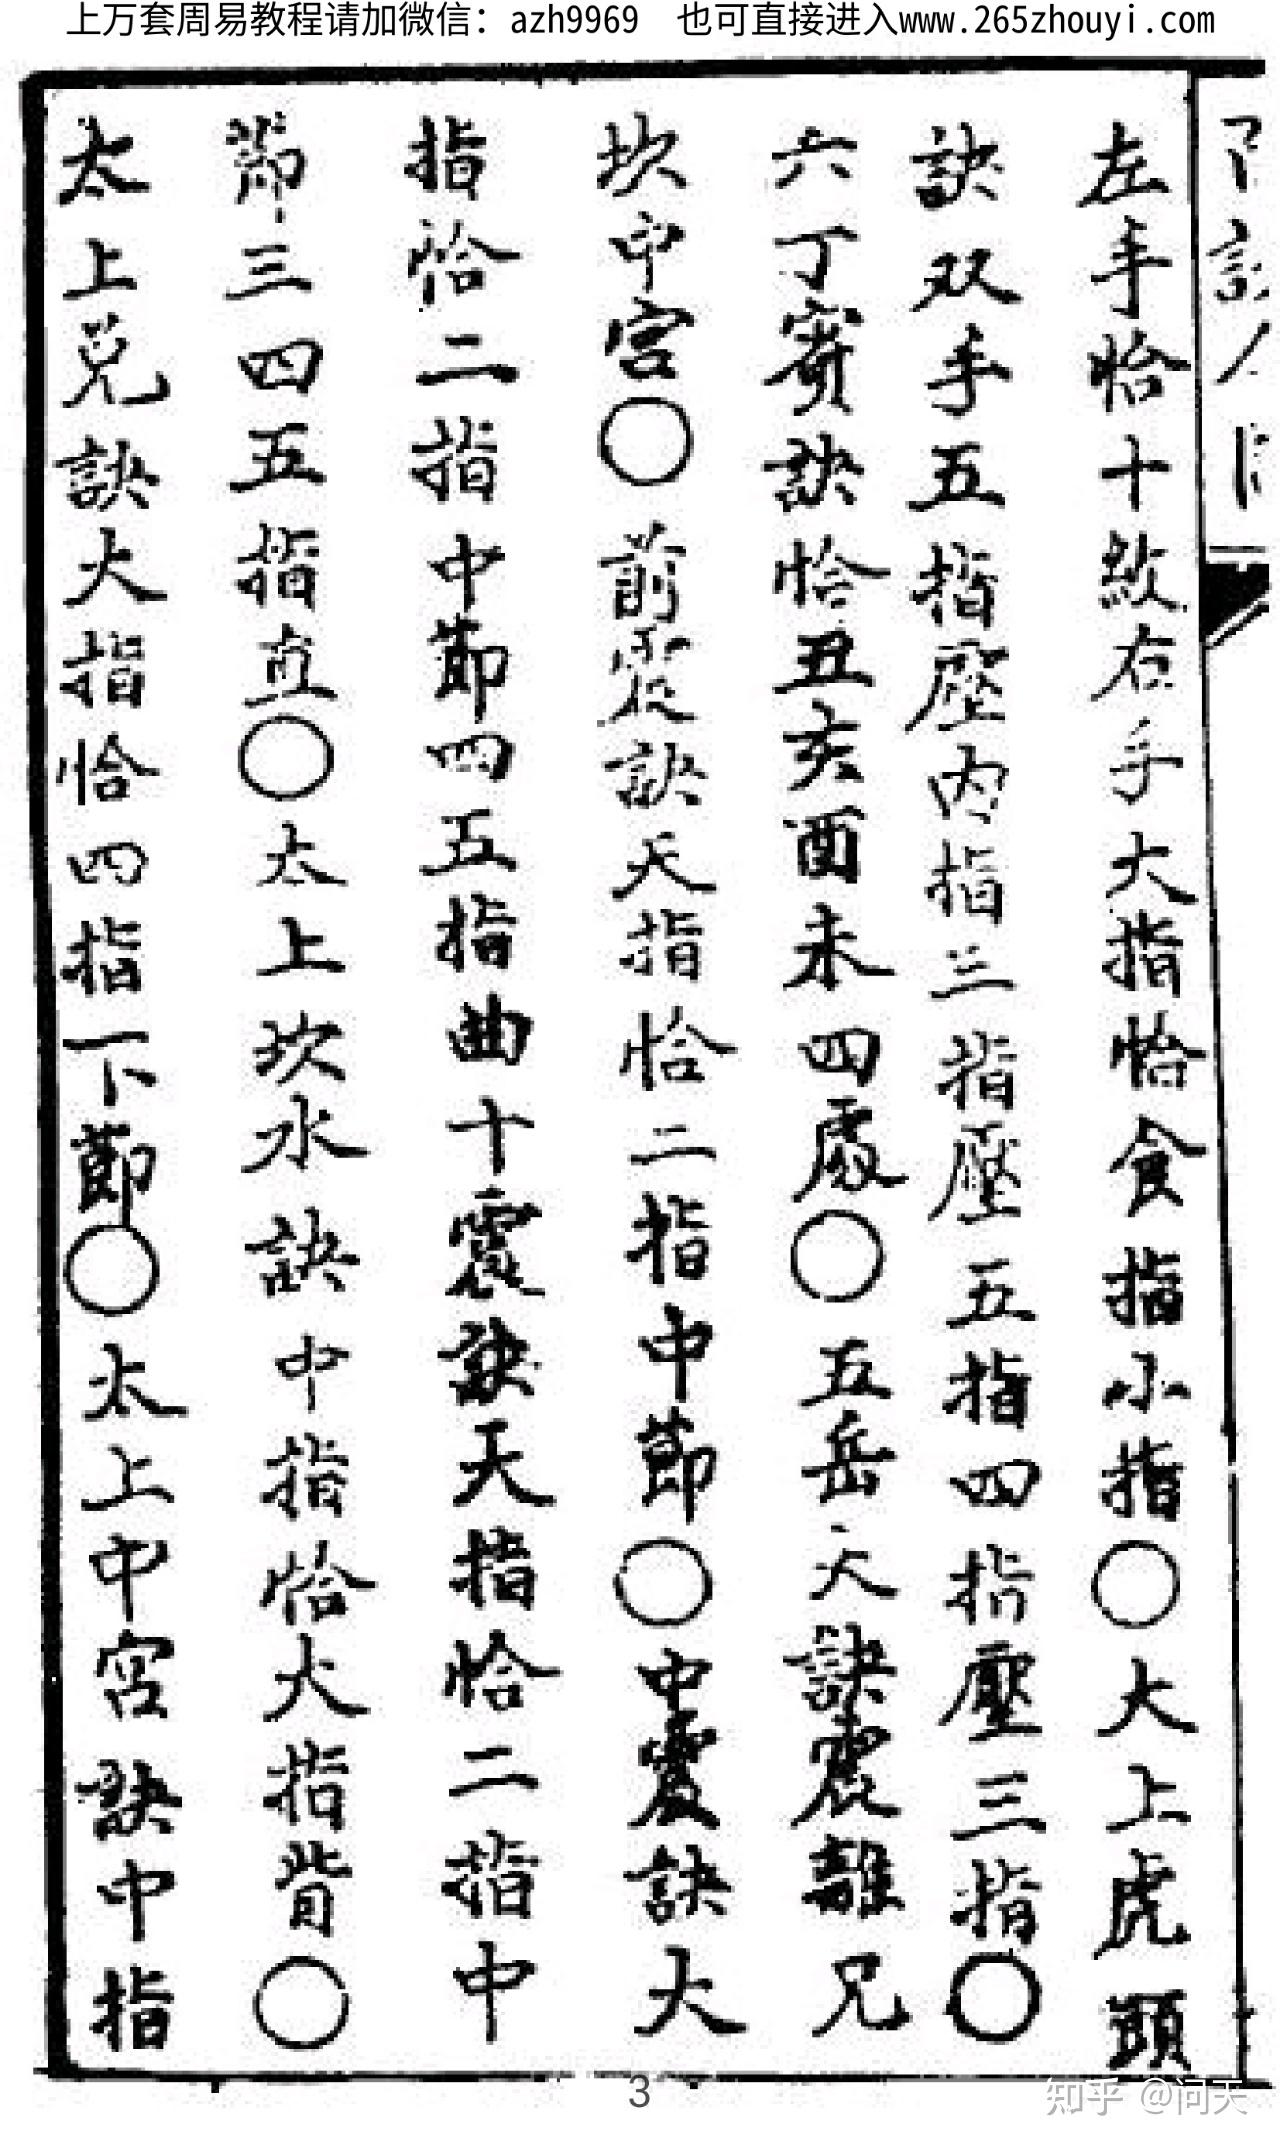 上万套周易教程请加微信：azh9969 也可直接进入www.265zhouyi.com
左手恰十紋右手大指恰食指小指〇大上虎頭
訣双手五指壓内指三指壓五指四指壓三指〇
六丁賓訣恰丑亥酉未四處〇五岳天訣震離兄
坎中宮〇前震訣天指恰二指中節〇中震訣大
指恰二指中節四五指曲十震訣天指恰二指中
節三四五指直〇太上坎水訣中指恰大指背〇
太上兑訣大指恰四指下節〇太上中宮訣中指
3
知乎 @问天